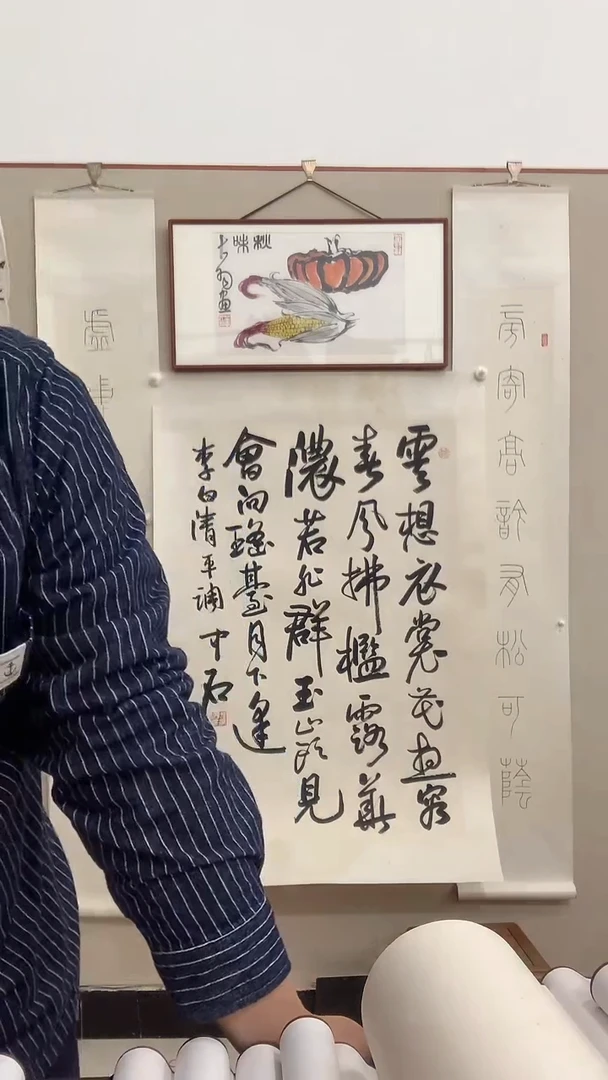 寄高有松可蔭
秋味
畫
雲想衣裳花想容
春風拂檻露華
濃若非群玉山頭見
會向瑤臺月下逢
李白清平調 中石
虛